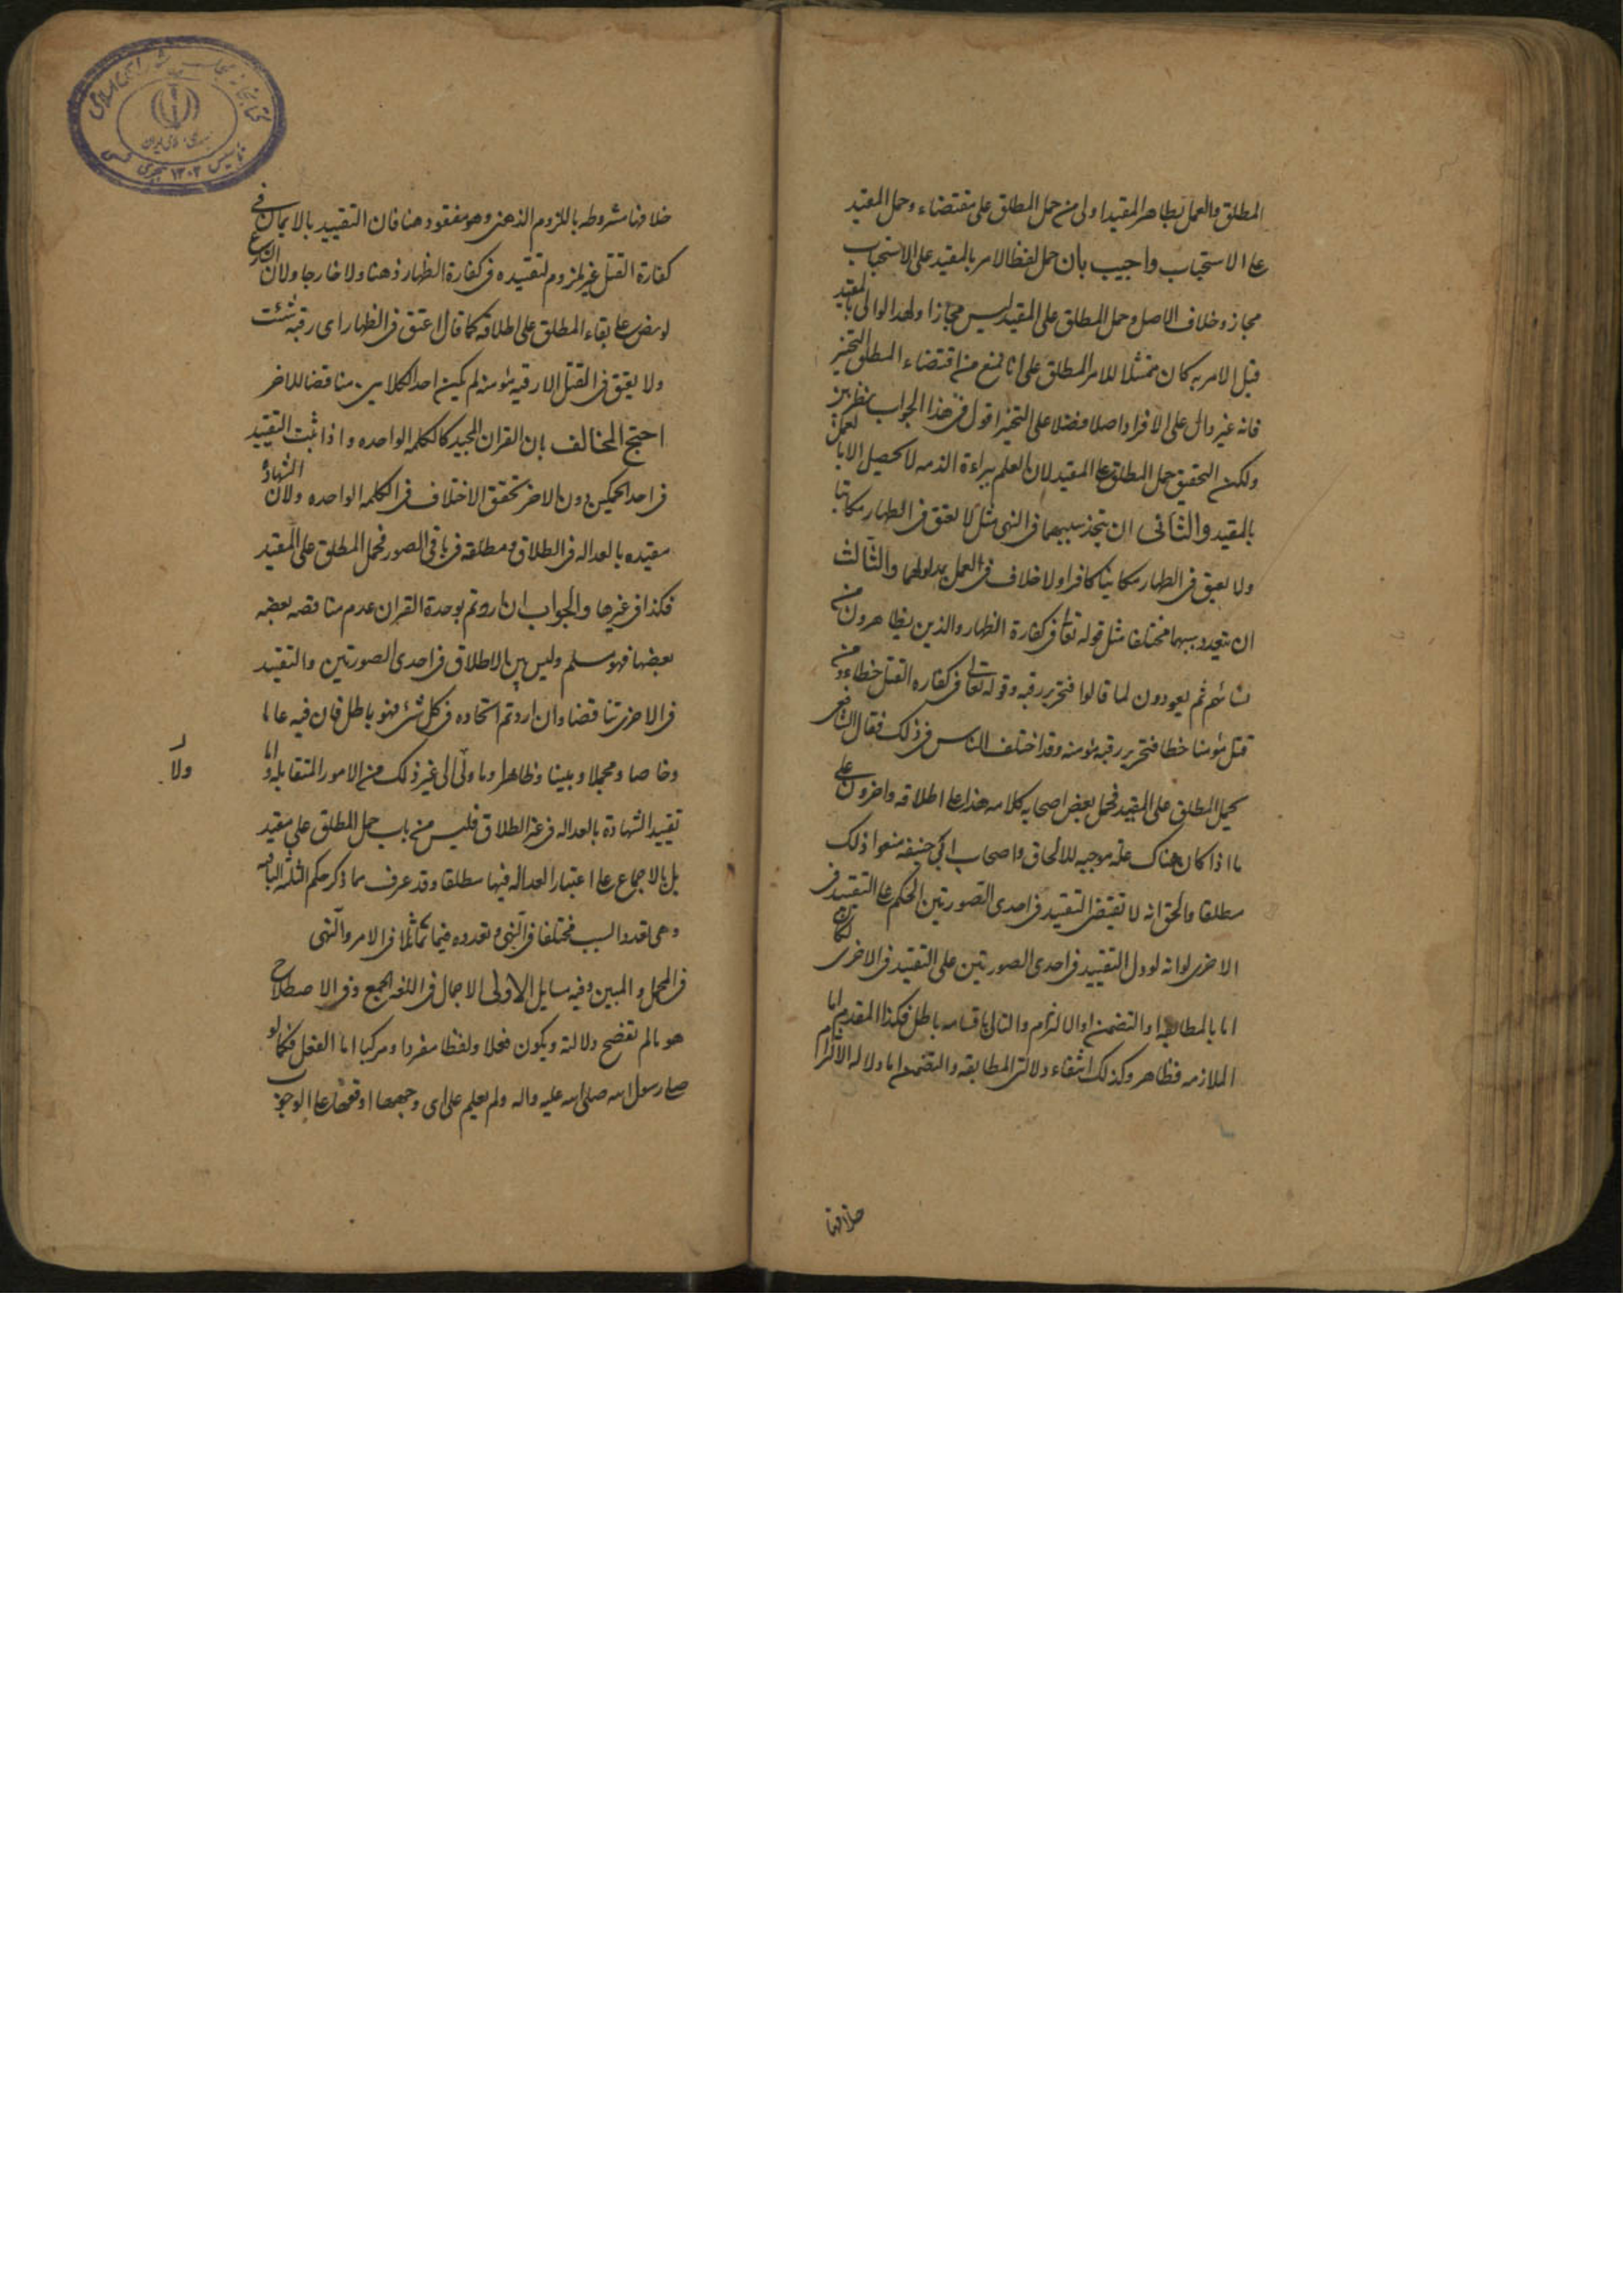 المطلق والعمل بظاهر المقيد اولى من حمل المطلق على مقتضاه وحمل المقيد
على الاستحباب واجيب بان حمل لفظ الامر بالمقيد على الاستحباب
مجاز وخلاف الاصل وحمل المطلق على المقيد ليس مجازا ولهذا لو اتى بالمقيد
قبل الامر به كان ممتثلا للامر المطلق على انا نمنع من اقتضاء المطلق التخيير
فانه غير دال على الافراد اصلا فضلا على التخيير اقول فى هذا الجواب نظر
ولكن التحقيق حمل المطلق على المقيد لان العلم ببراءة الذمه لا يحصل الا بالعمل
بالمقيد والثانى ان يتحد سببهما فى النهى مثل لا يعتق فى الظهار مكاتبا
ولا يعتق فى الظهار مكاتبا كافرا ولا خلاف فى العمل بمدلولهما والثالث
ان يتعدد سببهما مختلفا مثل قوله تعالى فى كفارة الظهار والذين يظاهرون من
نسائهم ثم يعودون لما قالوا فتحرير رقبه وقوله تعالى فى كفاره القتل خطاء ومن
قتل مؤمنا خطا فتحرير رقبه مؤمنه وقد اختلف الناس فى ذلك فقال الشافعى
يحمل المطلق على المقيد فحمل بعض اصحابه كلامه هذا على اطلاقه واخرون على
ما اذا كان هناك علة موجبه للالحاق واصحاب ابى حنيفه منعوا ذلك
مطلقا والحق انه لا تقتضى التقييد فى احدى الصورتين الحكم على التقييد فى
الاخرى لو انه لو دل التقييد فى احدى الصورتين على التقييد فى الاخرى لكان
اما بالمطابقه او التضمن او الالتزام والتالى باقسامه باطل فكذا المقدم اما
الملازمه فظاهر وكذلك انتفاء دلالتى المطابقه والتضمن اما دلاله الالتزام
خلافها
خلافها مشروطه باللزوم الذهنى وهو مفقود هنا فان التقييد بالايمان فى
كفارة القتل غير ملزوم لتقييده فى كفارة الظهار ذهنا ولا خارجا ولان الشارع
لو نص على بقاء المطلق على اطلاقه كما قال اعتق فى الظهار اى رقبه شئت
ولا يعتق فى القتل الا رقبه مؤمنه لم يكن احد الكلامين مناقضا للاخر
احتج المخالف بان القران المجيد كالكلمه الواحده واذا ثبت التقييد
فى احد الحكمين دون الاخر تحقق الاختلاف فى الكلمه الواحده ولان الشهادة
مقيده بالعداله فى الطلاق ومطلقه فى باقى الصور فحمل المطلق على المقيد
فكذا فى غيرها والجواب ان اردتم بوحدة القران عدم مناقضه بعضه
بعضها فهو مسلم وليس بين الاطلاق فى احدى الصورتين والتقييد
فى الاخرى تناقضا وان اردتم اتحاده فى كل شئ فهو باطل فان فيه عاما
وخاصا ومجملا ومبينا وظاهرا وماولا الى غير ذلك من الامور المتقابله واما
ولا
تقييد الشهادة بالعداله فى غير الطلاق فليس من باب حمل المطلق على مقيد
بل بالاجماع على اعتبار العداله فيها مطلقا وقد عرف مما ذكر حكم الثلثه الباقيه
وهى تعدد السبب مختلفا فى النهى وتعدده متماثلا فى الامر والنهى
فى المجمل والمبين وفيه مسايل الاولى الاجمال فى اللغه الجمع وفى الاصطلاح
هو ما لم تتضح دلالته ويكون فعلا ولفظا مفردا ومركبا اما الفعل فكما لو
صلى رسول الله صلى الله عليه واله ولم يعلم على اى وجهها اوقعها على الوجوب